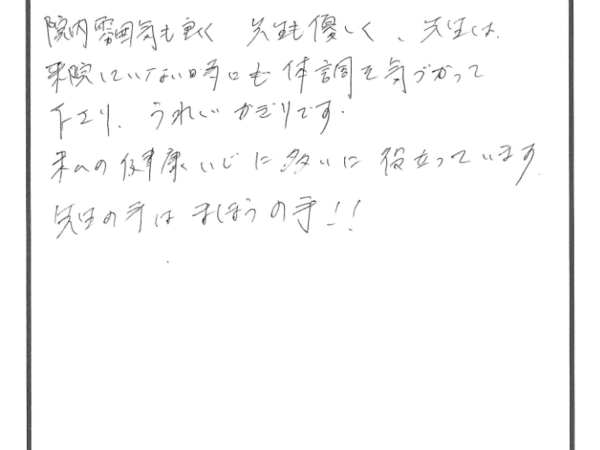 院内雰囲気も良く 先生も優しく、先生は
来院していない時にも体調を気づかって
下さり、うれしいかぎりです。
私の健康いじに多いに役立っています。
先生の手はまほうの手!!